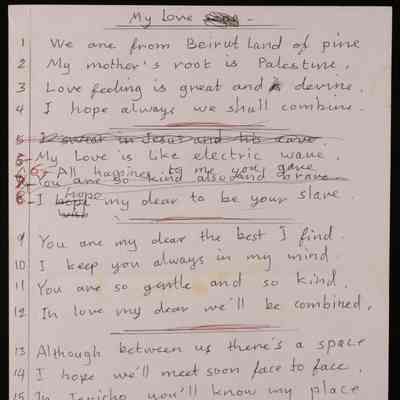 My Love -
1 We are from Beirut land of pine
2 My mother's root is Palestine.
3 Love feeling is great and devine.
4 I hope always we shall combine.
5 I swear in Jesus and his cave.
5- My Love is like electric wave.
6- All happiness to me you gave
7- You are so kind also and brave
hope
8- I hope my dear to be your slave.
9 You are my dear the best I find.
10 I keep you always in my mind.
11 You are so gentle and so kind.
12 In love my dear we'll be combined.
13 Although between us there's a space
14 I hope we'll meet soon face to face.
15 In Jericho you'll know my place